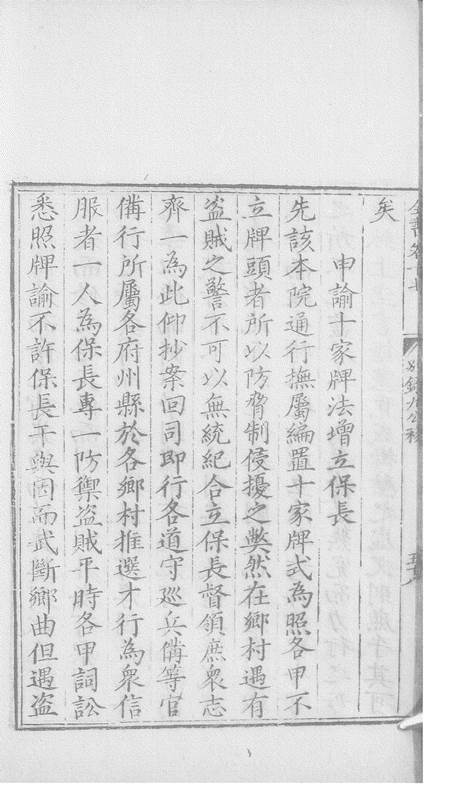 矣
申諭十家牌法增立保長
先該本院通行撫屬編置十家牌式為照各甲不
立牌頭者所以防脅制侵擾之弊然在鄉村遇有
盜賊之警不可以無統紀合立保長督領庶衆志
齊一為此仰抄案回司即行各道守廵兵備等官
備行所屬各府州縣於各鄉村推選才行為衆信
服者一人為保長專一防禦盜賊平時各甲詞訟
悉照牌諭不許保長干與因而武斷鄉曲但遇盜